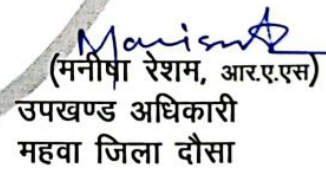 Manisha
(मनीषा रेशम, आर.ए.एस)
उपखण्ड अधिकारी
महवा जिला दौसा